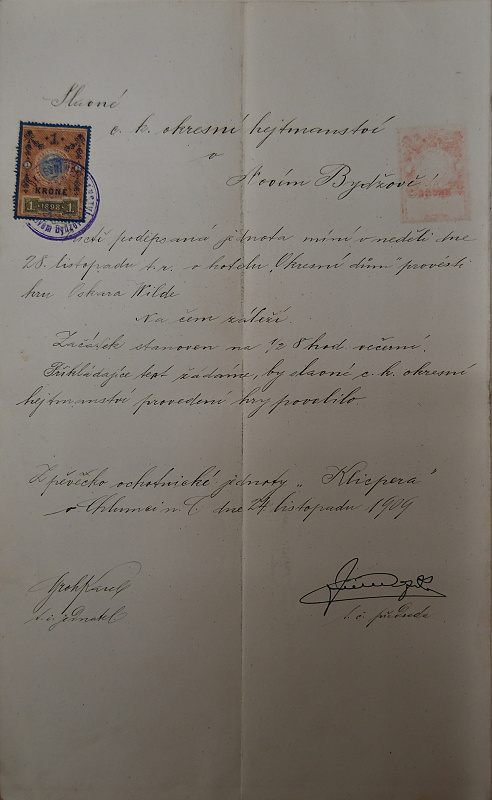 Slavné
c. k. okresní hejtmanství
v
Novém Bydžově
1
KRONE
1 1898 1
uctě podepsaná jednota míní v neděli dne
28. listopadu t.r. v hotelu „Okresní dům" provésti
hru Oskara Wilde
Na čem záleží.
Začátek stanoven na 1/2 8 hod. večerní.
Přikládajíce text žádáme, by slavné c. k. okresní
hejtmanství provedení hry povolilo
Zpěvácko ochotnické jednoty „Klicpera"
v Chlumci n. C. dne 24. listopadu 1909
t. č. jednatel
t. č. předseda